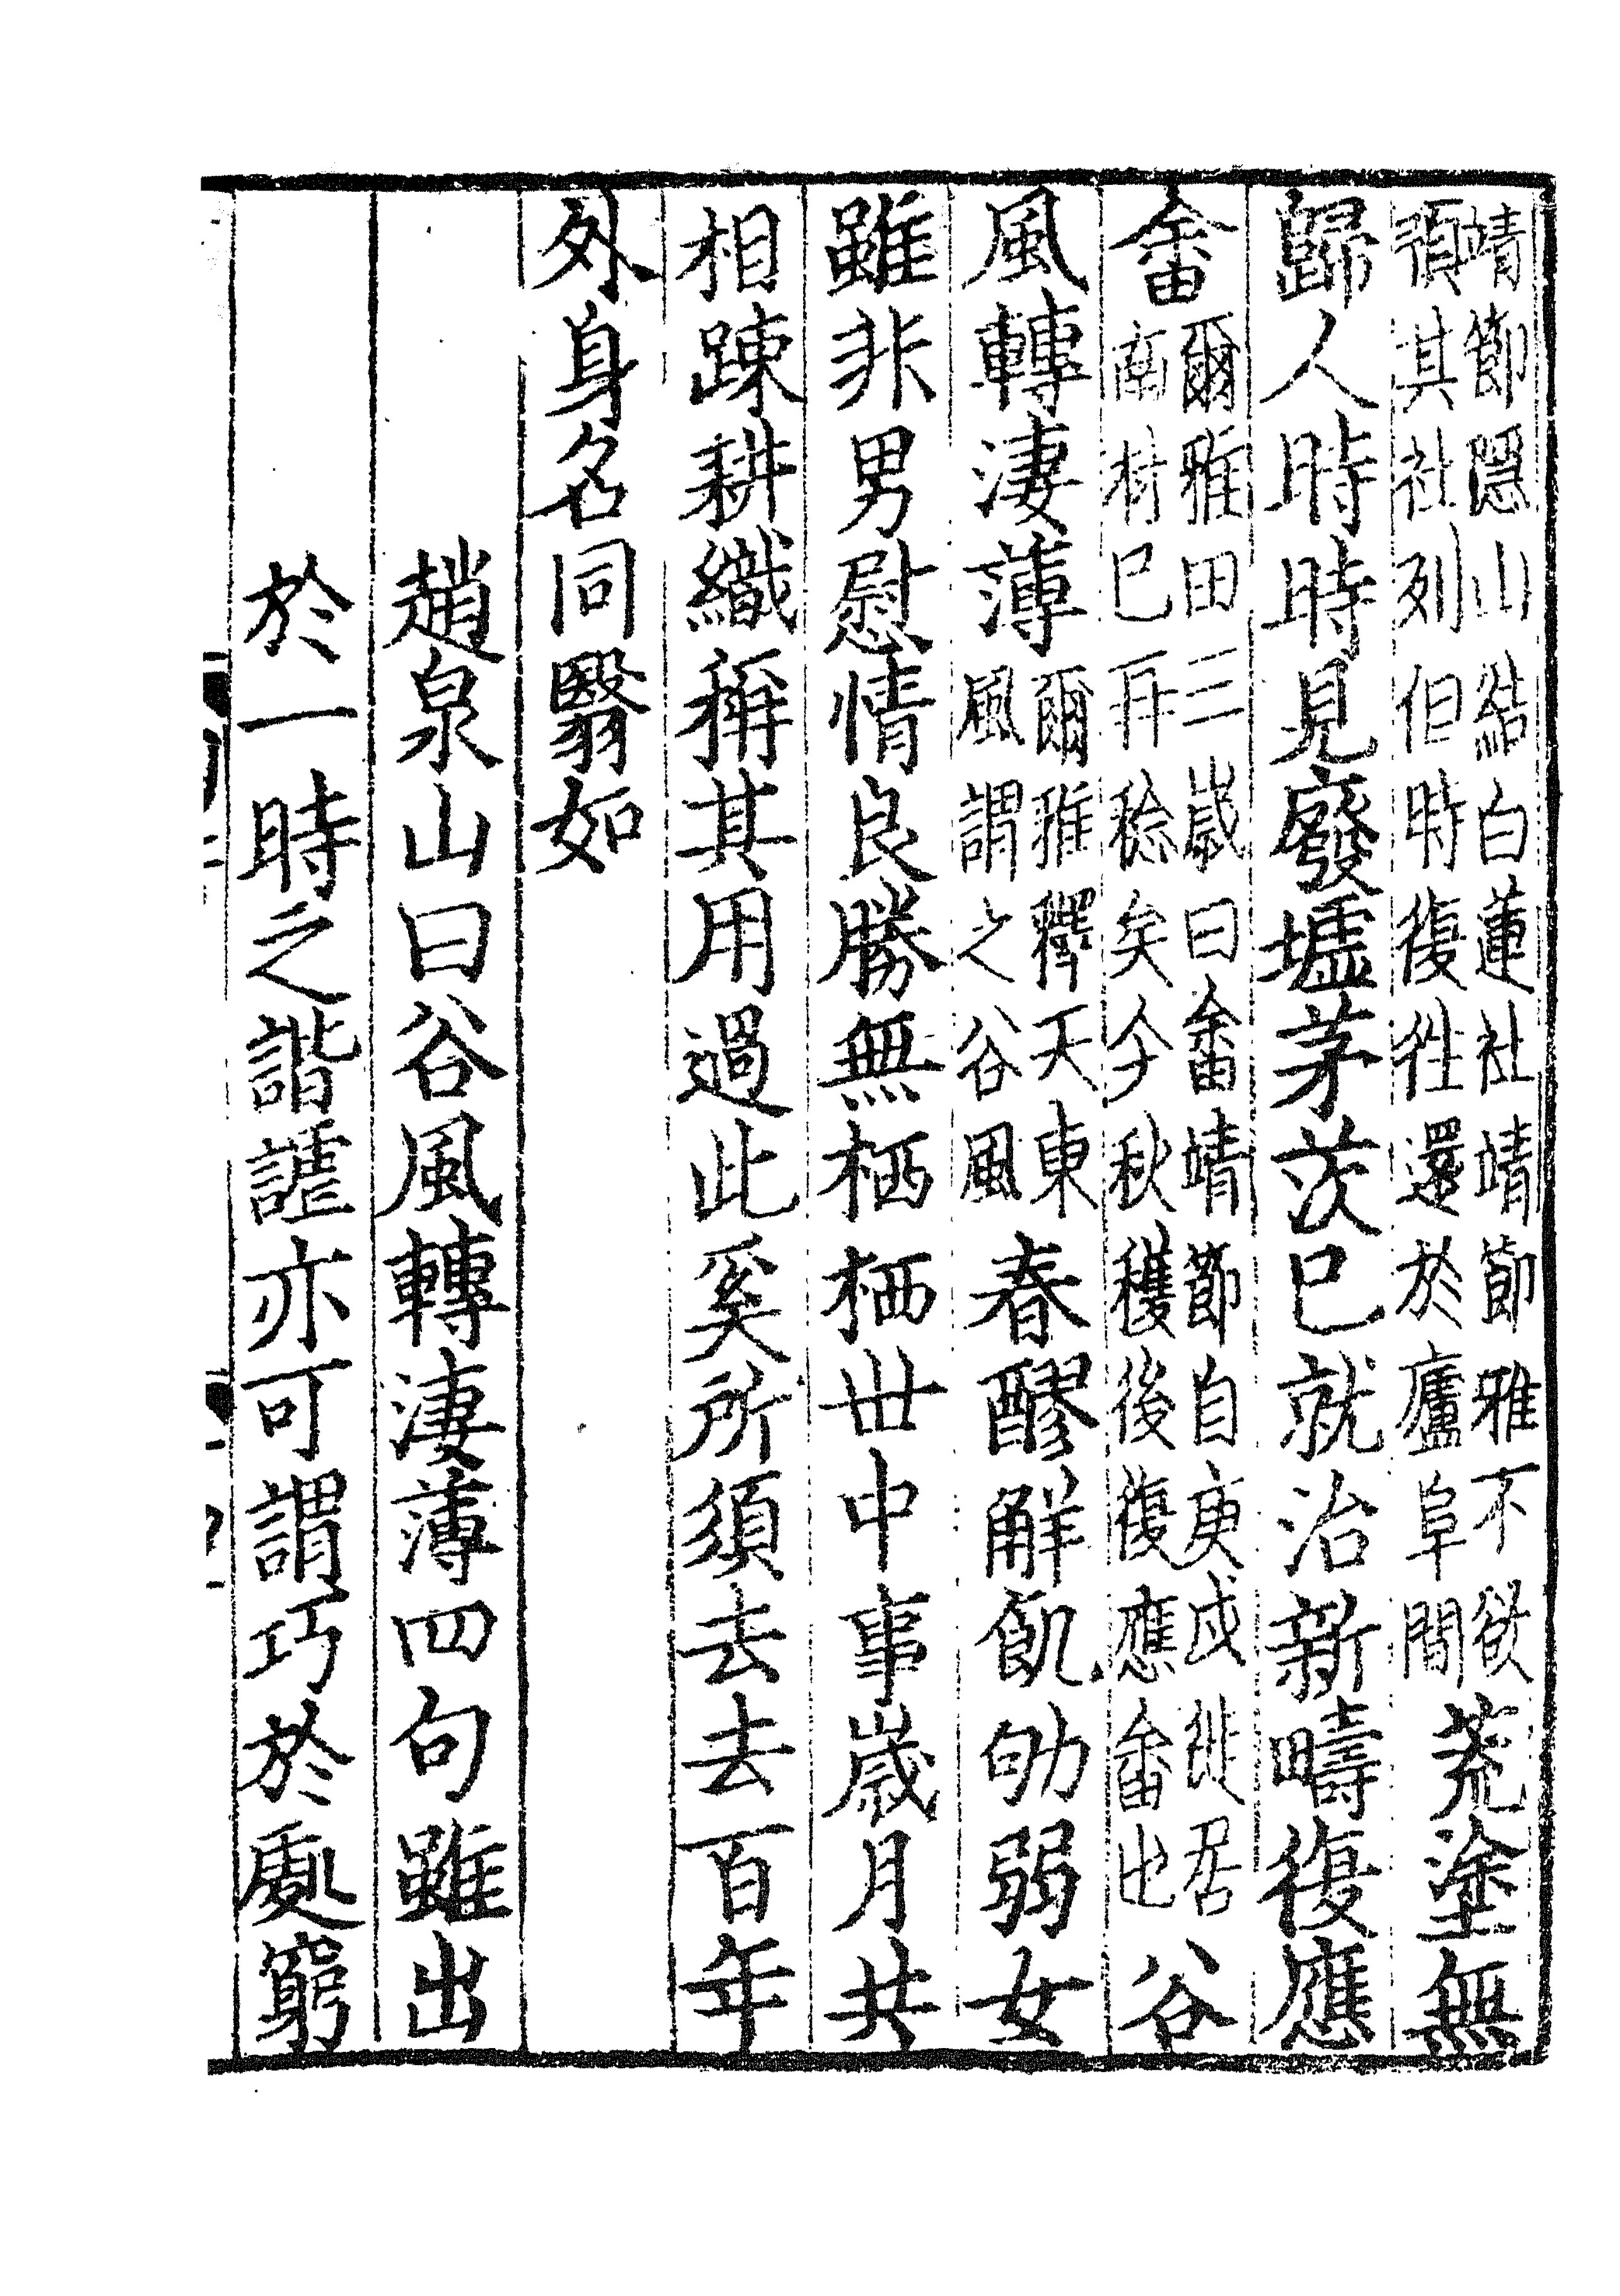 靖節隱山結白蓮社靖節雅不欲
預其社列但時復徃還於廬阜間
荒塗無
歸人時時見廢墟茅茨已就治新疇復應
畬
爾雅田三歲曰畬靖節自庚戌徙居
南村已再稔矣今秋穫後復應畬也
谷
風轉淒薄
爾雅釋天東
風謂之谷風
春醪解飢劬弱女
雖非男慰情良勝無栖栖丗中事歲月共
相踈耕織稱其用過此奚所須去去百年
外身名同翳如
趙泉山曰谷風轉淒薄四句雖出
於一時之諧謔亦可謂巧於處窮